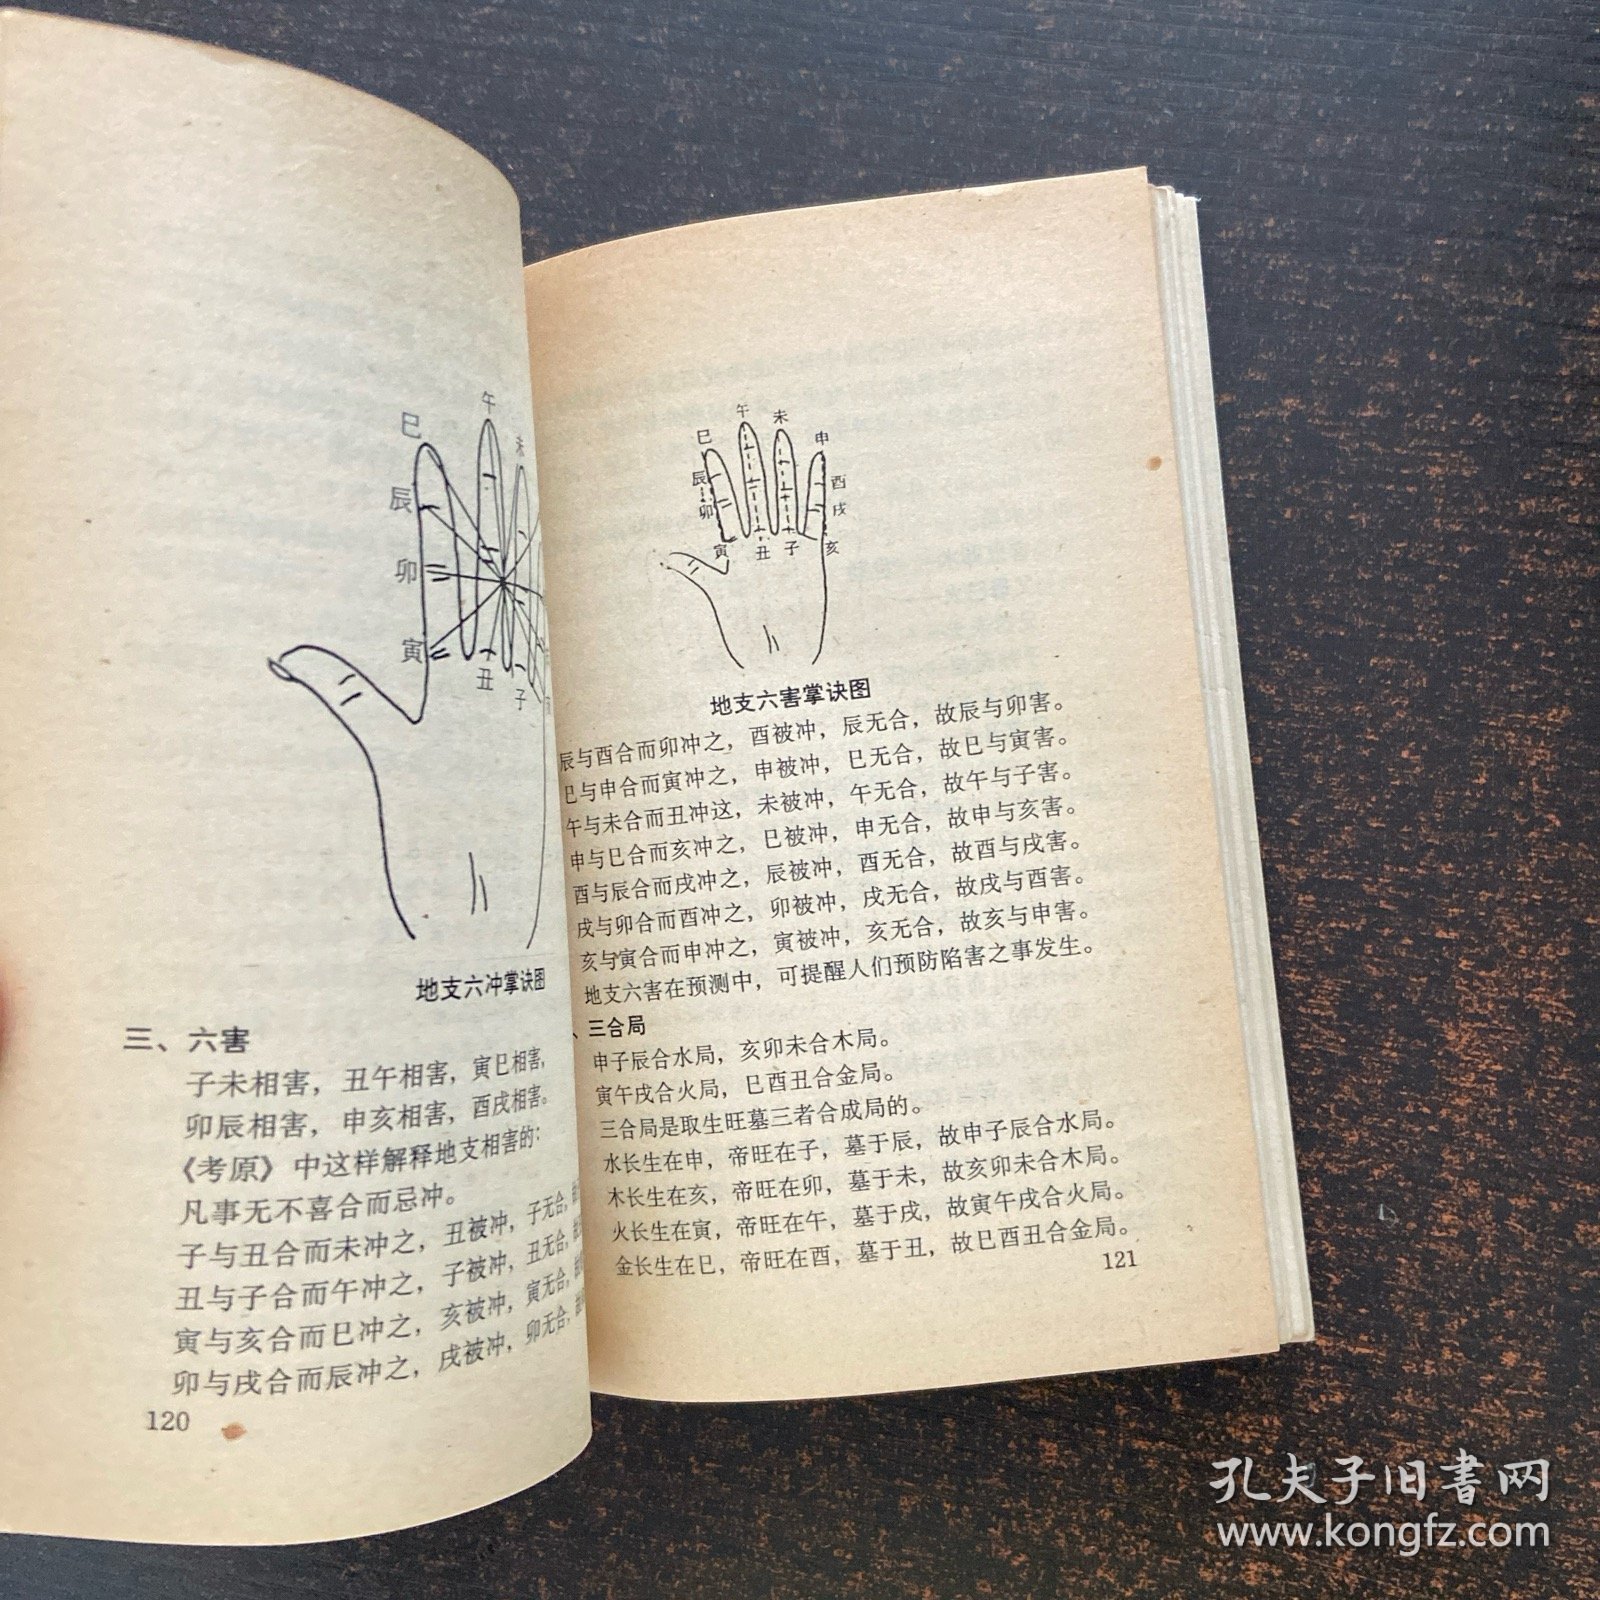 巳
午
未
辰
卯
寅
丑
子
地支六冲掌诀图
三、六害
子未相害，丑午相害，寅巳相害，
卯辰相害，申亥相害，酉戌相害。
《考原》中这样解释地支相害的：
凡事无不喜合而忌冲。
子与丑合而未冲之，丑被冲，子无合，
丑与子合而午冲之，子被冲，丑无合，
寅与亥合而巳冲之，亥被冲，寅无合，
卯与戌合而辰冲之，戌被冲，卯无合，
120
巳
午
未
申
辰
酉
卯
戌
寅
丑
子
亥
地支六害掌诀图
辰与酉合而卯冲之，酉被冲，辰无合，故辰与卯害。
巳与申合而寅冲之，申被冲，巳无合，故巳与寅害。
午与未合而丑冲这，未被冲，午无合，故午与子害。
申与巳合而亥冲之，巳被冲，申无合，故申与亥害。
酉与辰合而戌冲之，辰被冲，酉无合，故酉与戌害。
戌与卯合而酉冲之，卯被冲，戌无合，故戌与酉害。
亥与寅合而申冲之，寅被冲，亥无合，故亥与申害。
地支六害在预测中，可提醒人们预防陷害之事发生。
、三合局
申子辰合水局，亥卯未合木局。
寅午戌合火局，巳酉丑合金局。
三合局是取生旺墓三者合成局的。
水长生在申，帝旺在子，墓于辰，故申子辰合水局。
木长生在亥，帝旺在卯，墓于未，故亥卯未合木局。
火长生在寅，帝旺在午，墓于戌，故寅午戌合火局。
金长生在巳，帝旺在酉，墓于丑，故巳酉丑合金局。
121
孔夫子旧书网
www.kongfz.com